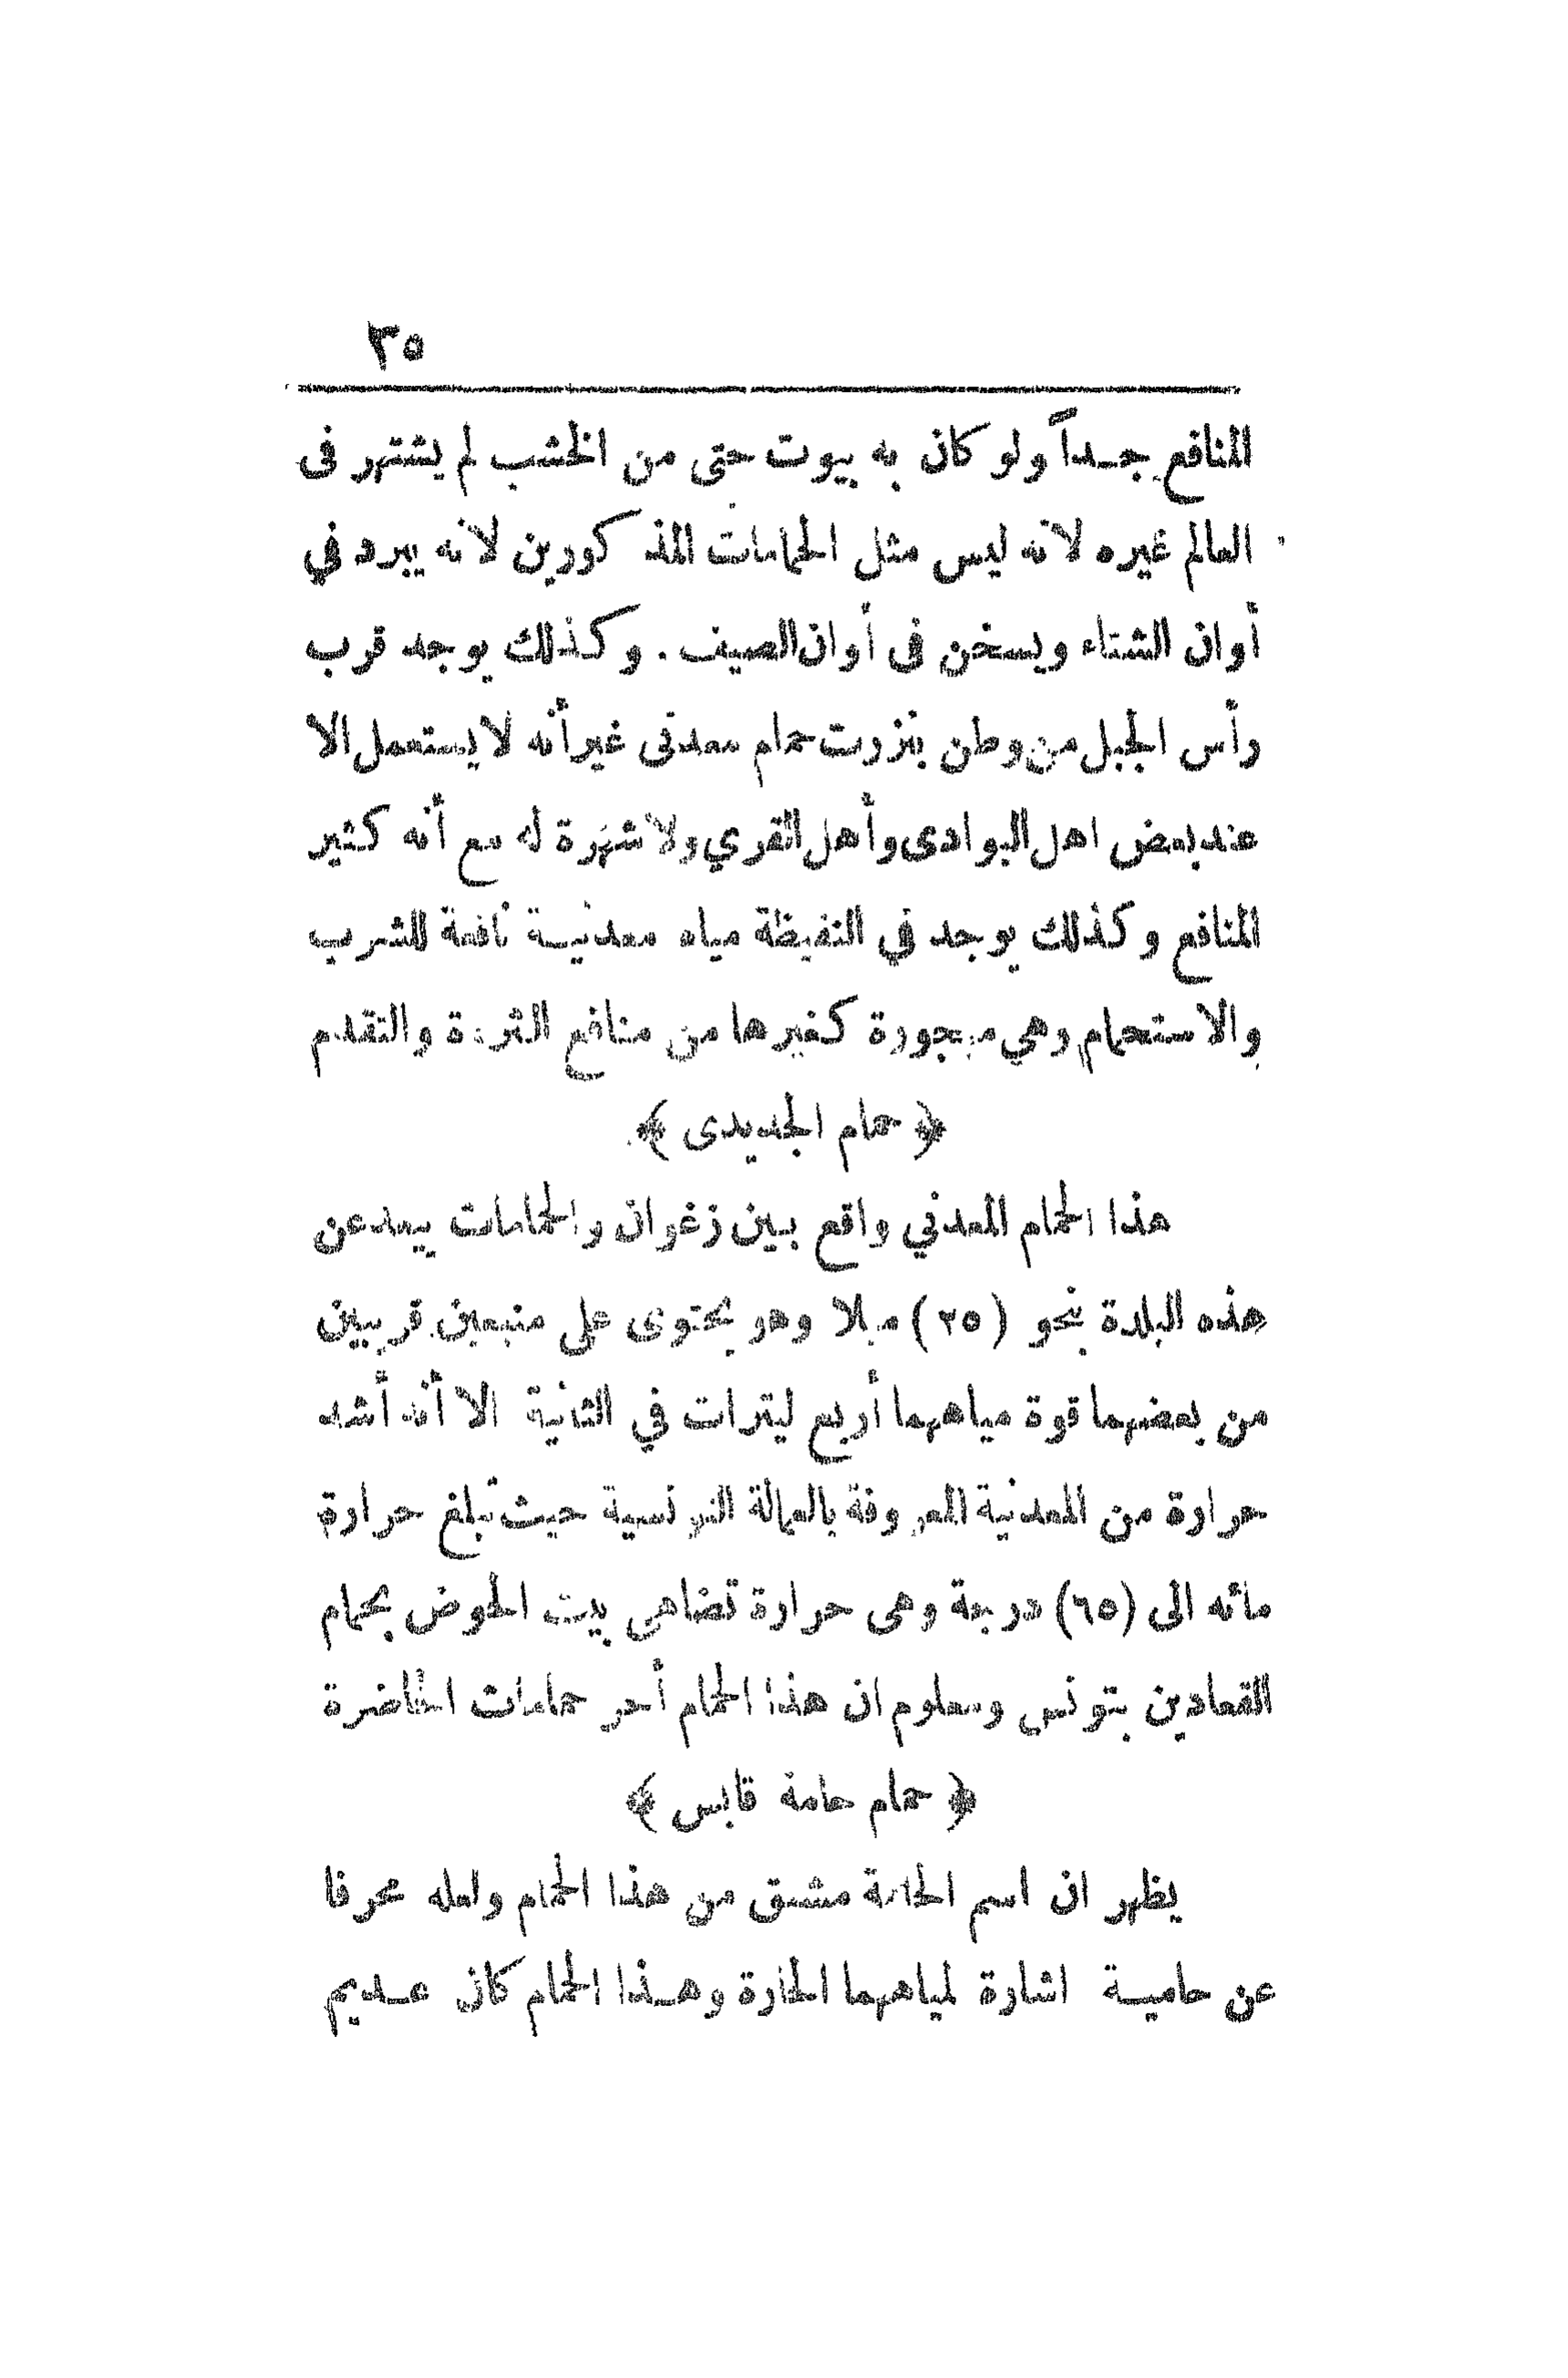 ٣٥
المنافع جداً ولو كان به بيوت حتى من الخشب لم يشتهر فى
العالم غيره لانه ليس مثل الحمامات المذ كورين لانه يبرد في
أوان الشتاء ويسخن فى أوان الصيف . وكذلك يوجد قرب
رأس الجبل من وطن بنزرت حمام معدنى غير أنه لا يستعمل الا
عند بعض اهل البوادى وأهل القري ولا شهرة له مع أنه كثير
المنافع وكذلك يوجد في النفيظة مياه معدنية نافعة للشرب
والاستحمام وهي مهجورة كغيرها من منافع الثروة والتقدم
﴿ حمام الجديدى ﴾
هذا الحمام المعدني واقع بين زغوان والحمامات يبعد عن
هذه البلدة بنحو (٢٥) ميلا وهو يحتوى على منبعين قريبين
من بعضهما قوة مياههما أربع ليترات في الثانية الا أنه أشد
حرارة من المعدنية المعروفة بالعمالة التونسية حيث تبلغ حرارة
مائه الى (٦٥) درجة وهى حرارة تضاهى بيت الحوض بحمام
القعادين بتونس ومعلوم ان هذا الحمام أحر حمامات الحاضرة
﴿ حمام حامة قابس ﴾
يظهر ان اسم الحامة مشتق من هذا الحمام ولعله محرفا
عن حامية اشارة لمياههما الحارة وهذا الحمام كان عديم